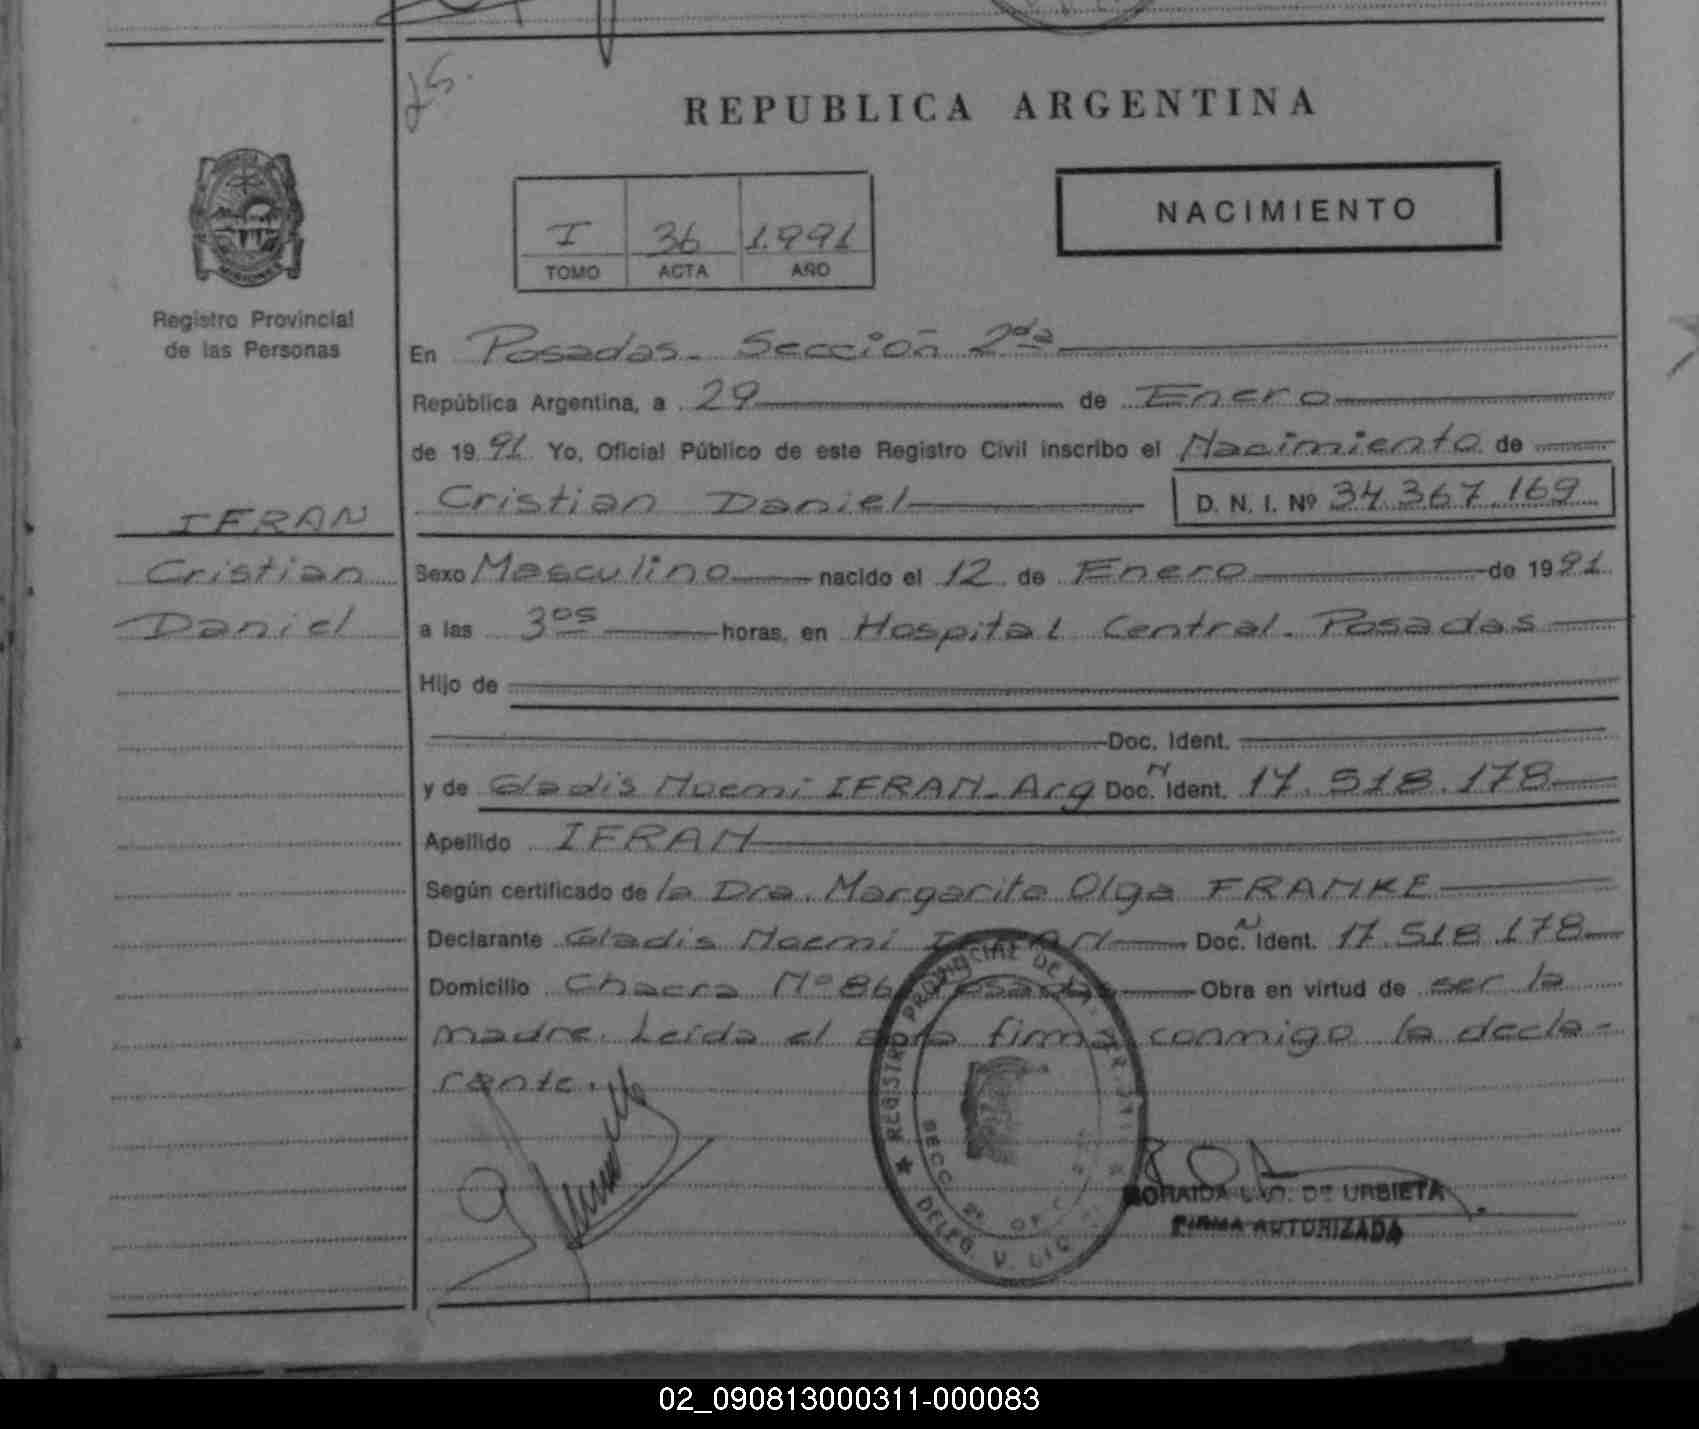 REPUBLICA ARGENTINA
I 36 1.991
TOMO ACTA AÑO
NACIMIENTO
Registro Provincial
de las Personas
En Posadas. Sección 2da
República Argentina, a 29 de Enero
de 1991 Yo, Oficial Público de este Registro Civil inscribo el Nacimiento de
Cristian Daniel D. N. I. Nº 34.367.169
IFRAN
Cristian
Daniel
Sexo Masculino nacido el 12 de Enero de 1991
a las 3os horas, en Hospital Central. Posadas
Hijo de
Doc. Ident.
y de Gladis Noemi IFRAN. Arg Doc. N Ident. 17.518.178
Apellido IFRAN
Según certificado de la Dra. Margarita Olga FRANKE
Declarante Gladis Noemi IFRAN Doc. N Ident. 17.518.178
Domicilio Chacra Nº 86 Posadas Obra en virtud de ser la
madre. Leida el acta firma conmigo la decla-
rante.
REGISTRO PROVINCIAL DE
SECC. 2ª
DELEG.
DE URBIETA
FIRMA AUTORIZADA
02_090813000311-000083